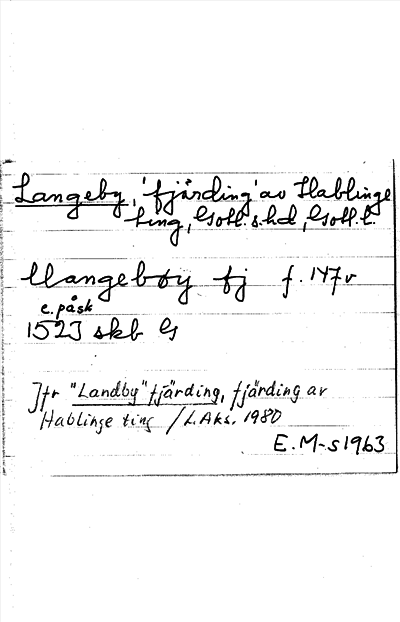 Langeby, 'fjärding' av Hablinge
ting, Gotl. s. hd, Gotl. l.
Mangebøy fj f. 147v
e. påsk
1523 skb G
Jfr "Landby" fjärding, fjärding av
Hablinge ting /L.Aks. 1980
E.M-s 1963